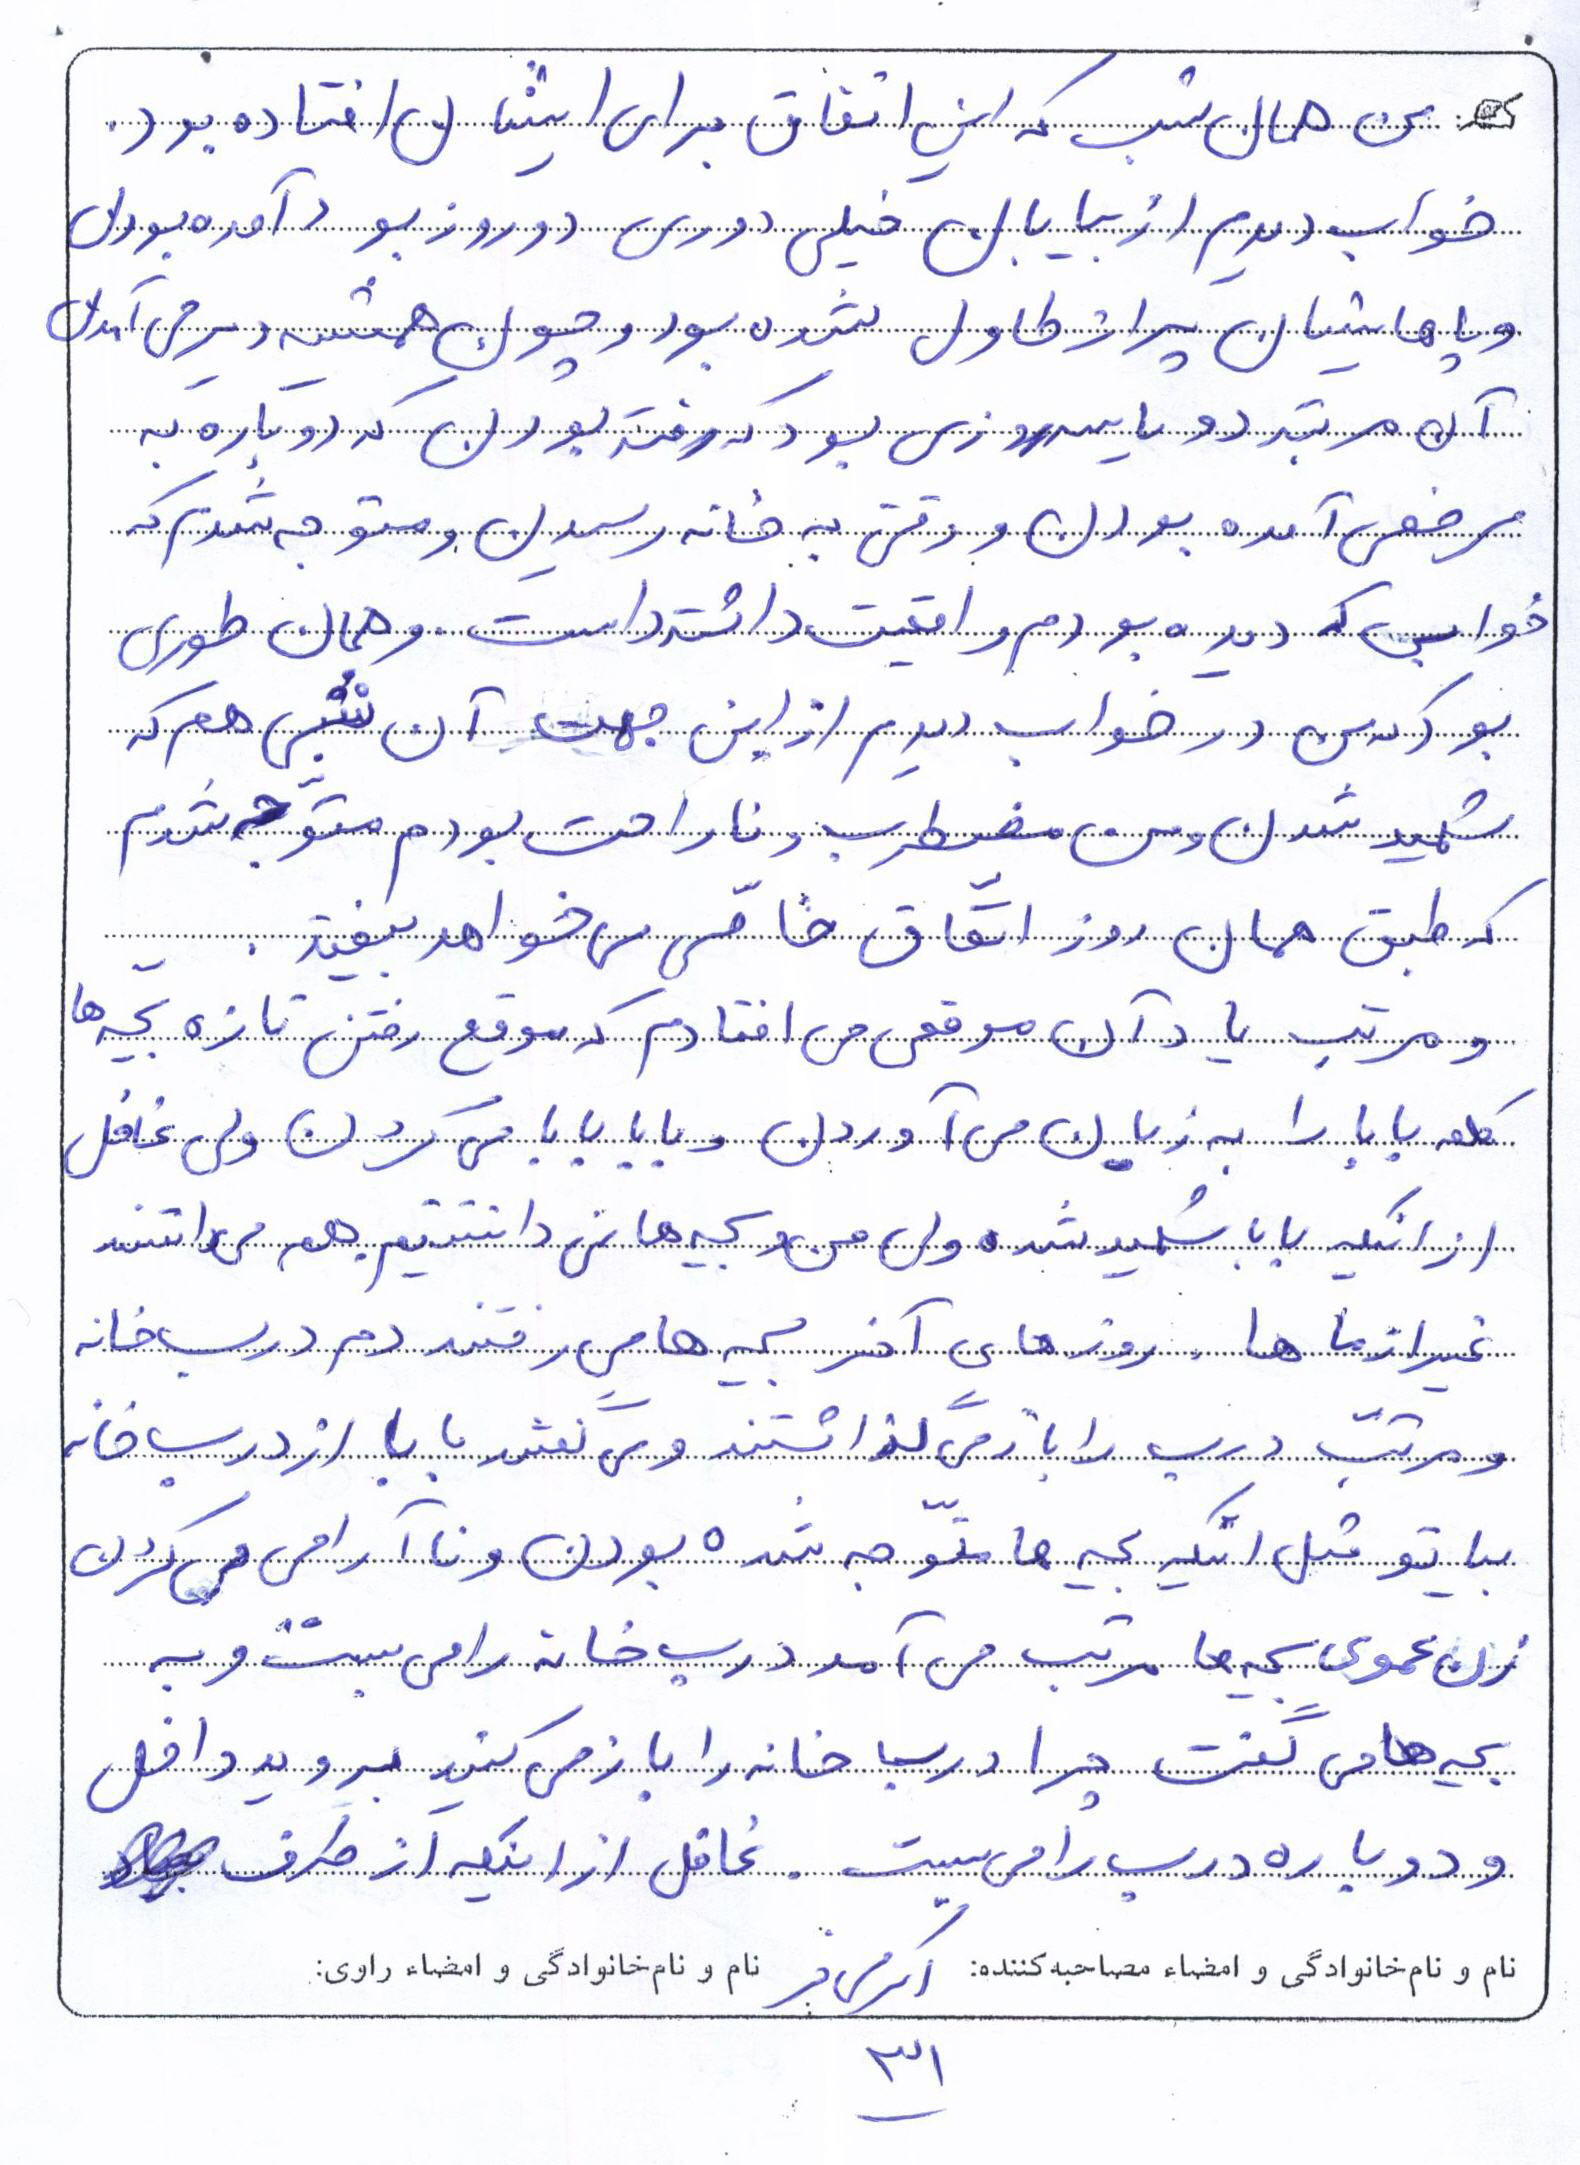 من همان شب که این اتفاق برای ایشان افتاده بود.
خواب دیدم از بیابان خیلی دوری دو روز بود آمده بودن
و پاهایشان پر از طاول شده بود و چون همیشه دیر می آمدن
آن مرتبه دو یا سه روزی بود که رفته بودن که دوباره به
مرخصی آمده بودن و وقتی به خانه رسیدن و متوجه شدم که
خوابی که دیده بودم واقعیت داشته است. و همان طوری
بود که من در خواب دیدم از این جهت آن شبی هم که
شهید شدن و من مضطرب و ناراحت بودم متوّجه شدم
که طبق همان روز اتّفاق خاصّی می خواهد بیفتد.
و مرتب یاد آن موقعی می افتادم که موقع رفتن تازه بچّه ها
کلمه بابا را به زبان می آوردن و بابا بابا می کردن ولی غافل
از اینکه بابا شهید شده ولی من و بچه ها نمی دانستیم همه می دانستند
غیر از ما ها. روزهای آخر بچه ها می رفتند دم درب خانه
و مرتّب درب را باز می گذاشتند و می گفتند بابا از درب خانه
بیا تو مثل اینکه بچه ها متوّجه شده بودن و ناآرامی می کردن
زن عموی بچه ها مرتب می آمد درب خانه را می بست و به
بچه ها می گفت چرا درب خانه را باز می کنید بروید داخل
و دوباره درب را می بست. غافل از اینکه از طرف
نام و نام‌خانوادگی و امضاء مصاحبه‌کننده: نام و نام‌خانوادگی و امضاء راوی:
۳۱